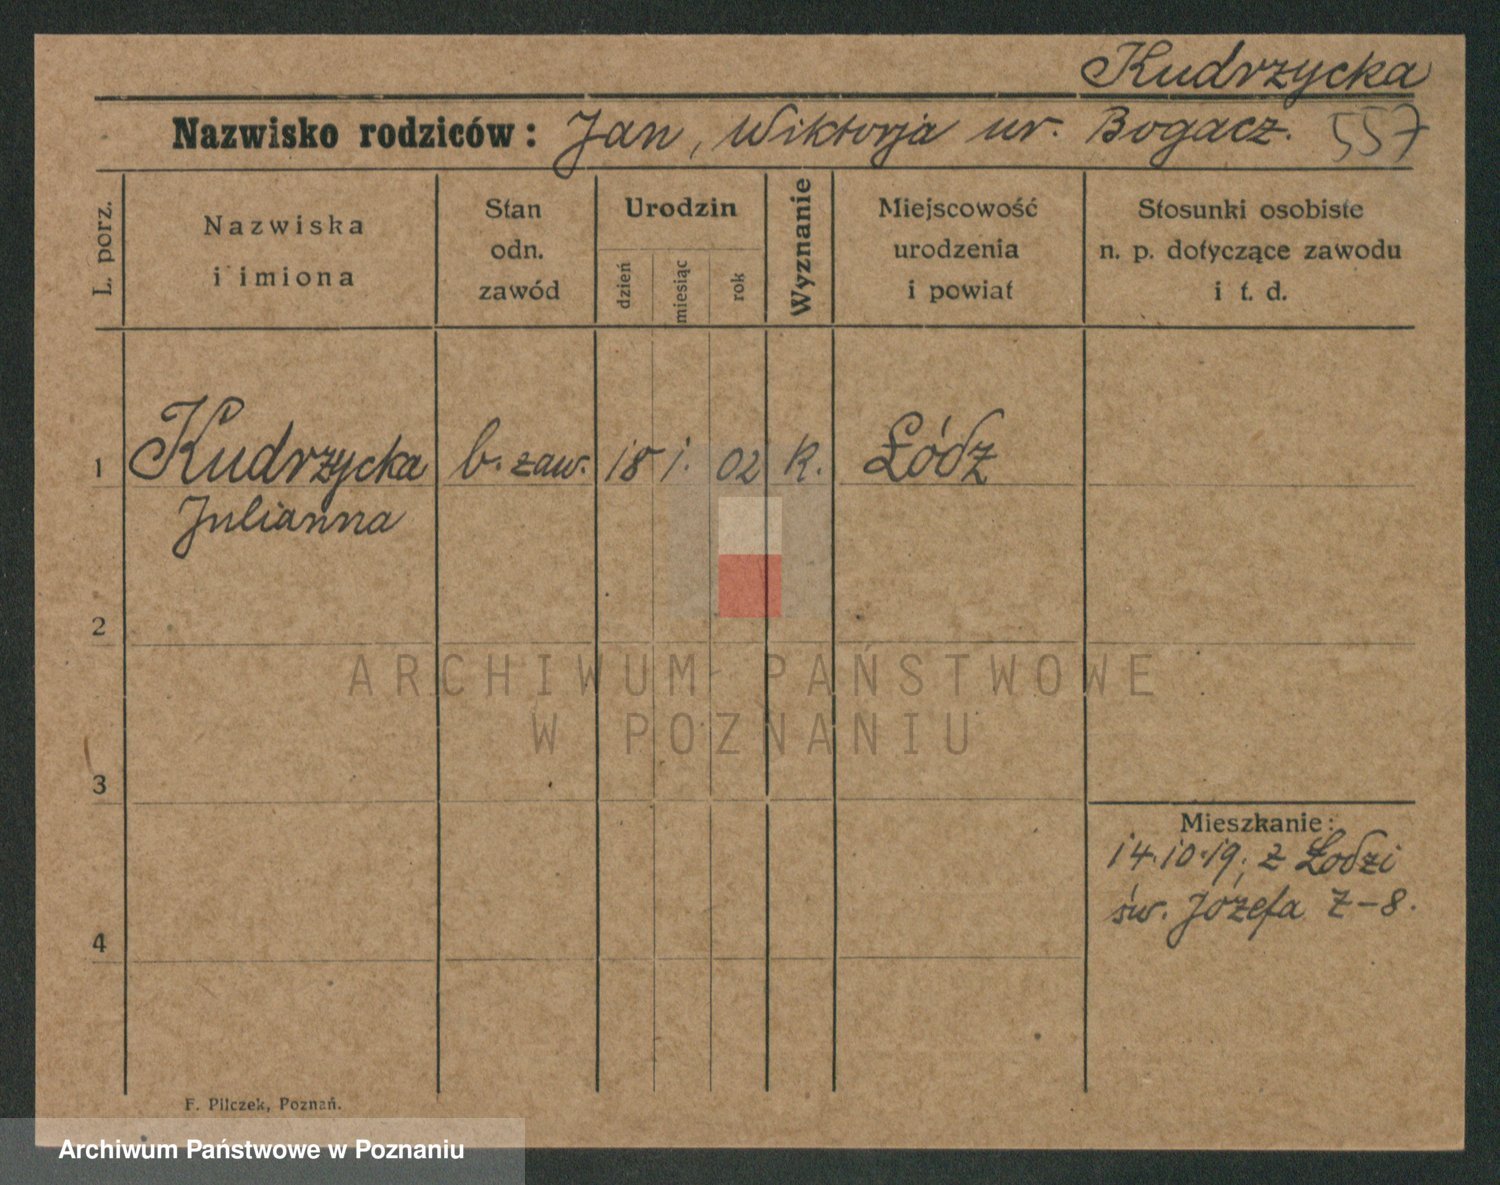 Kudrzycka
Nazwisko rodziców: Jan, Wiktorja ur. Bogacz. 557
L. porz.
Nazwiska
i imiona
Stan
odn.
zawód
Urodzin
dzień
miesiąc
rok
Wyznanie
Miejscowość
urodzenia
i powiat
Stosunki osobiste
n. p. dotyczące zawodu
i t. d.
1 Kudrzycka b. zaw. 18 1. 02 K. Łódz
Julianna
2
3
4
Mieszkanie:
14.10.19; z Łodzi
św. Józefa Z-8.
ARCHIWUM PAŃSTWOWE
W POZNANIU
F. Pilczek, Poznań.
Archiwum Państwowe w Poznaniu